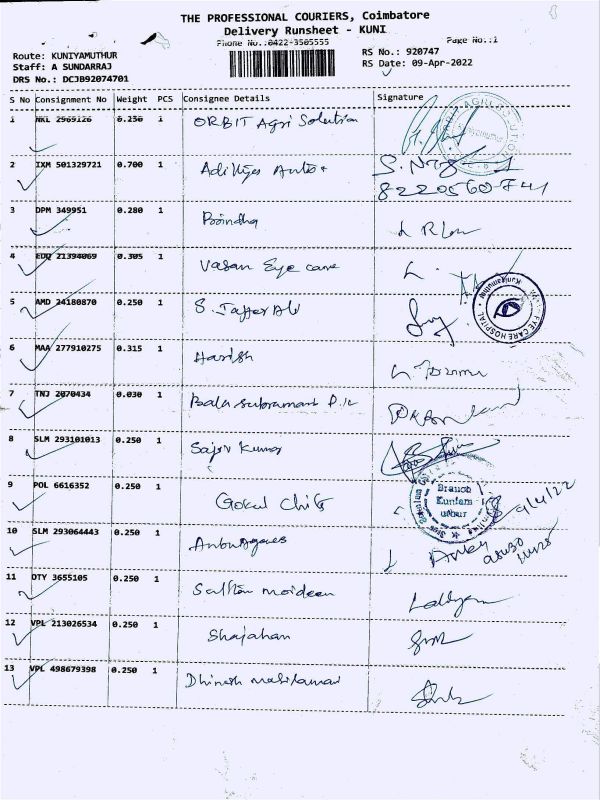 THE PROFESSIONAL COURIERS, Coimbatore
Delivery Runsheet - KUNI
Phone No.:0422-3505555
Page No.:1
Route: KUNIYAMUTHUR
Staff: A SUNDARRAJ
DRS No.: DCJB92074701
RS No.: 920747
RS Date: 09-Apr-2022
S No Consignment No Weight PCS Consignee Details Signature
1 NKL 2969126 0.250 1 ORBIT Agri Solution
2 IXM 501329721 0.700 1 Adithya Auto
8220560741
3 DPM 349951 0.280 1 Brindha
4 EDQ 21394069 0.305 1 Vasan Eye care
EYE CARE HOSPITAL
Kuniamuthur
5 AMD 24180870 0.250 1 S. Jaffer Ali
6 MAA 277910275 0.315 1 Harish
7 TNJ 2070434 0.030 1 Bala Subramani P.K
8 SLM 293101013 0.250 1 Sajiv Kumar
9 POL 6616352 0.250 1 Gokul Chits
Branch
Kuniam
uthur
9/4/22
10 SLM 293064443 0.250 1
11 DTY 3655105 0.250 1 moideen
12 VPL 213026534 0.250 1 Shajahan
13 VPL 498679398 0.250 1 Dhinesh